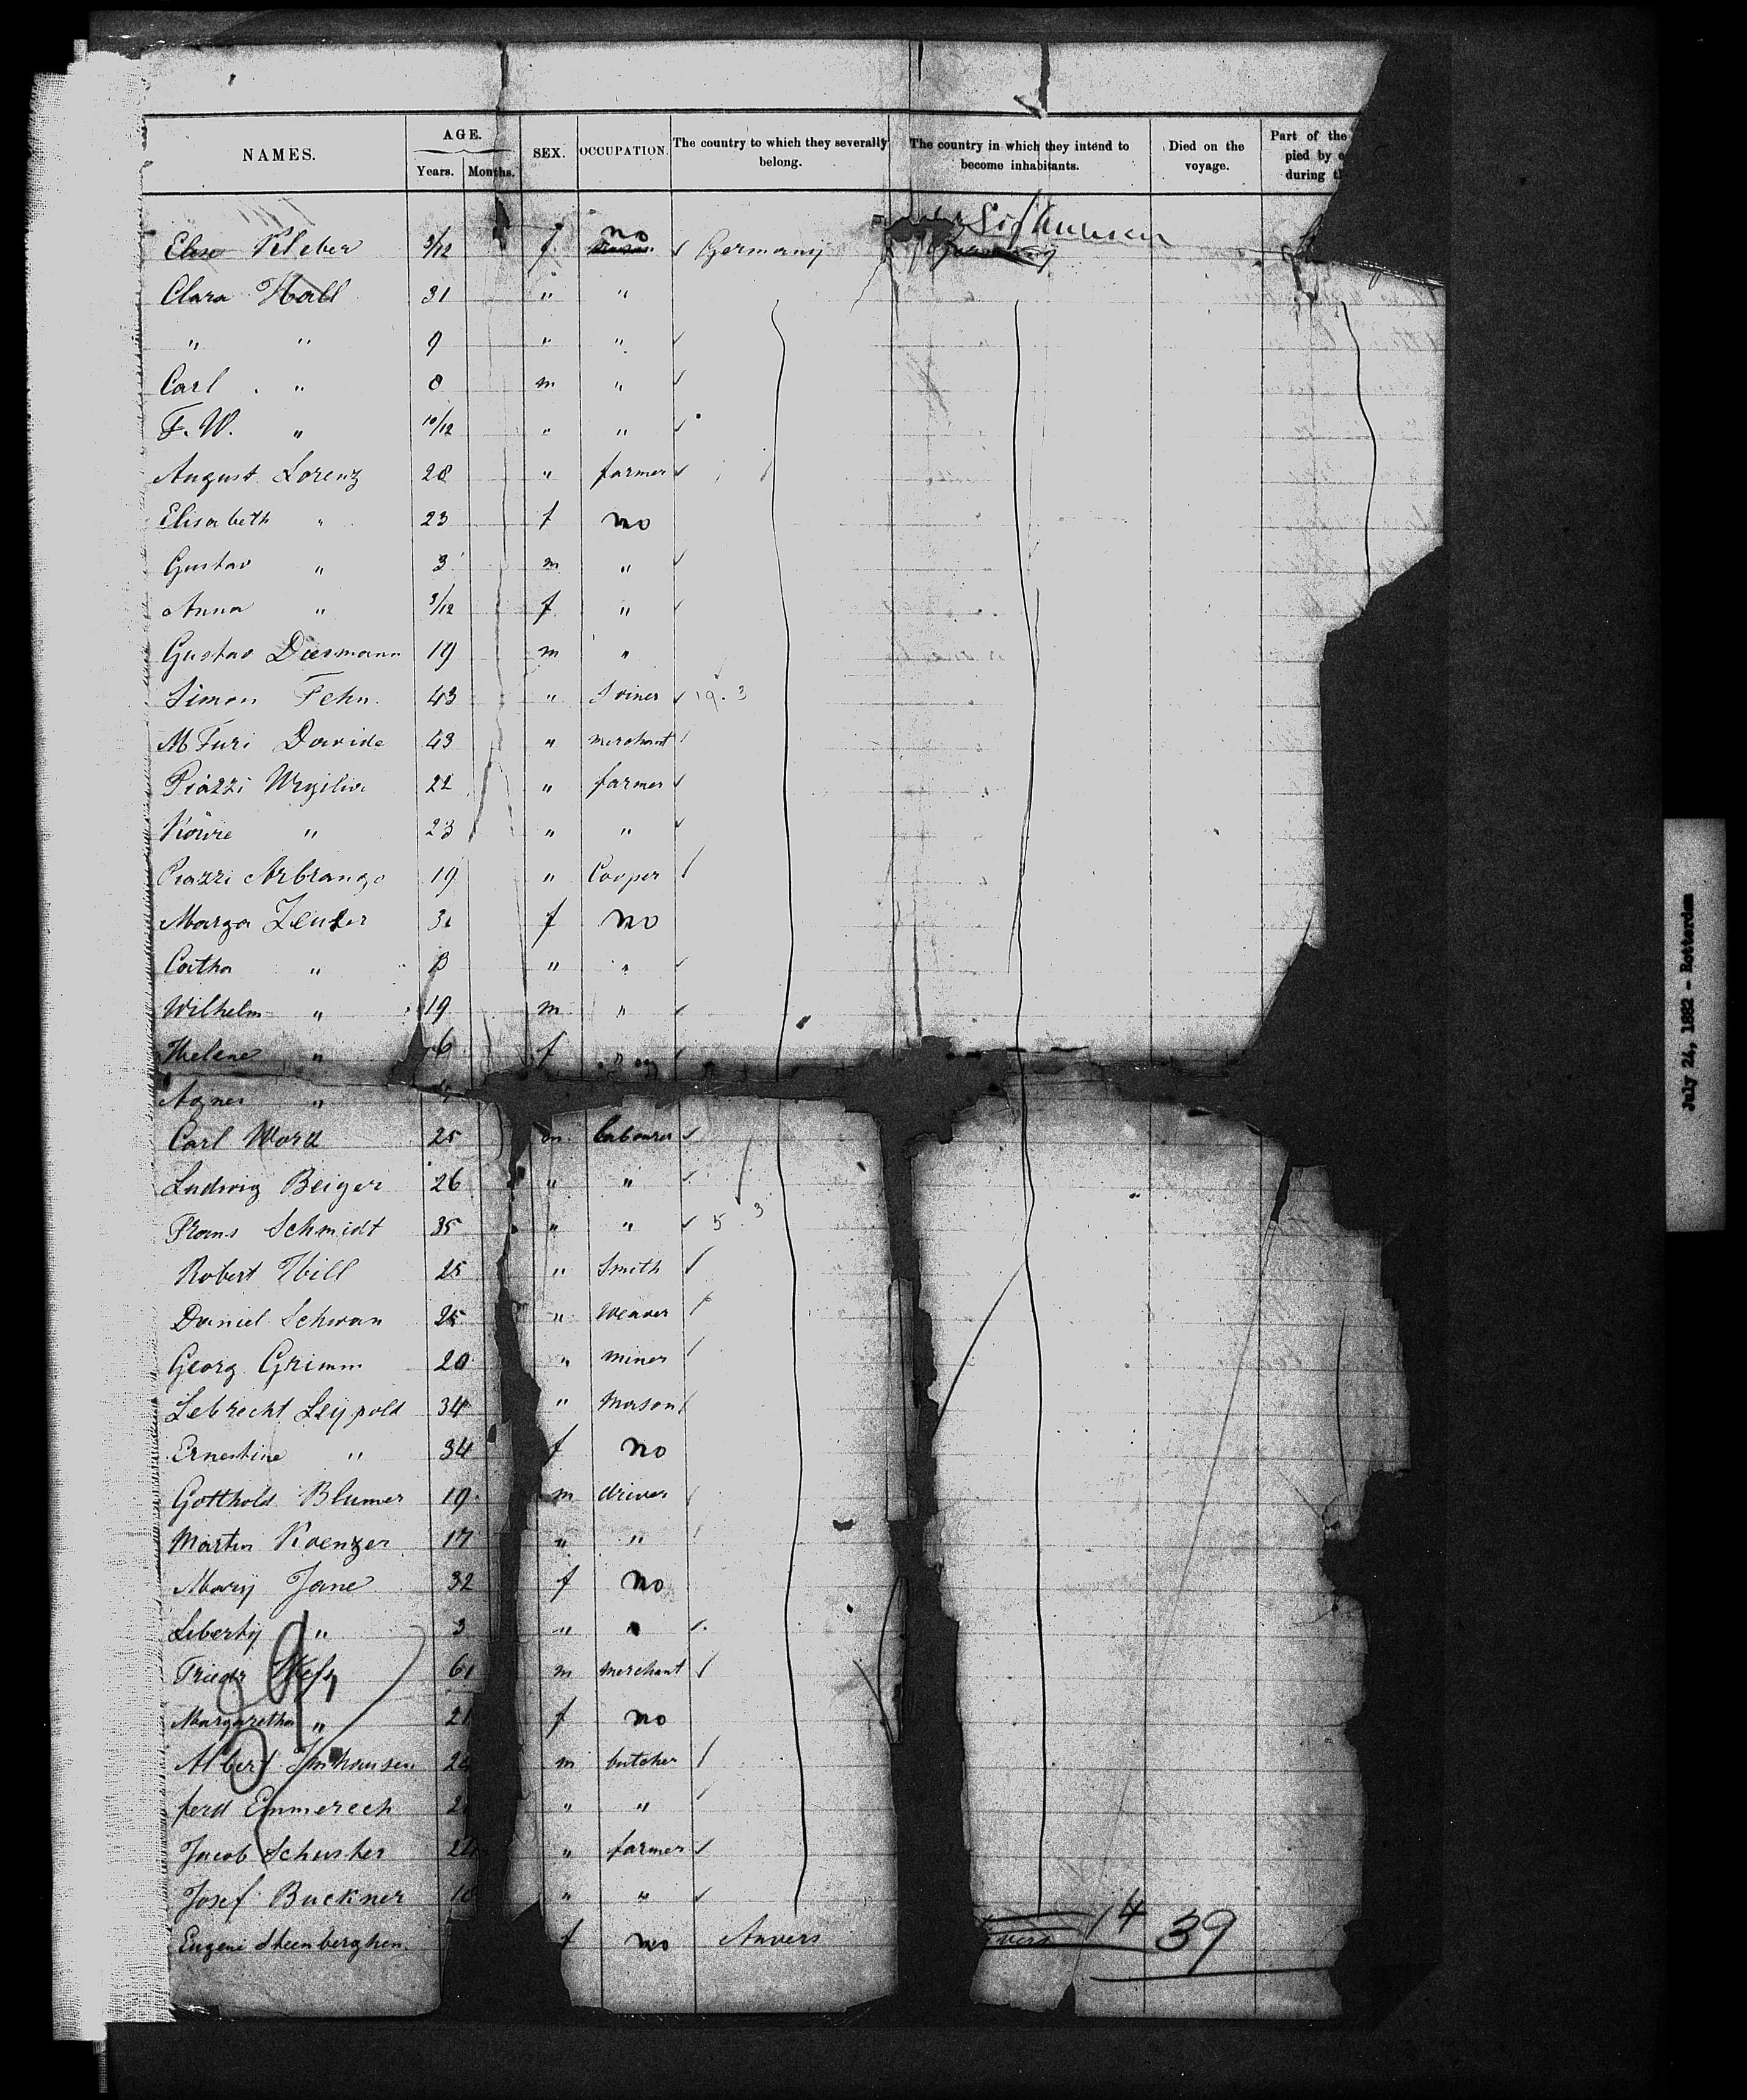 NAMES. AGE. Years. Months. SEX. OCCUPATION. The country to which they severally belong. The country in which they intend to become inhabitants. Died on the voyage. Part of the pied by e during th
Elise Kleber 3/12 f no Germany Germany
Clara Hall 31 " "
" " 9 " "
Carl " 8 m "
F. W. " 10/12 " "
August Lorenz 28 " farmer
Elisabeth " 23 f no
Gustav " 3 m "
Anna " 3/12 f "
Gustav Diesmann 19 m "
Simon Fehn 43 " Joiner 19. 3
M Turi Davide 43 " merchant
Piazzi Virgilio 22 " farmer
" 23 " "
Piazzi Arbrango 19 " Cooper
Marga Zeuler 31 f no
Catha " 8 " "
Wilhelm " 19 m "
Helene " 6 f "
Agnes "
Carl Word 25 m labourer
Ludwig Beiger 26 " "
Frans Schmidt 35 " " 5 3
Robert Will 25 " Smith
Daniel Schwan 25 " Weaver
Georg Grimm 20 " miner
Lebrecht Leypold 34 " Mason
Ernestine " 34 f no
Gotthold Blumer 19 m driver
Martin Koenzer 17 " "
Mary Jane 32 f no
Liberty " 3 " "
Friedr 61 m merchant
Margaretha " 21 f no
Albert Imhausen 24 m butcher
ferd Emmerech 2 " "
Jacob Schuster 24 " farmer
Josef Buckner 18 " "
Eugeni Steenberghen f no Anvers 14 39
July 24, 1882 - Rotterdam